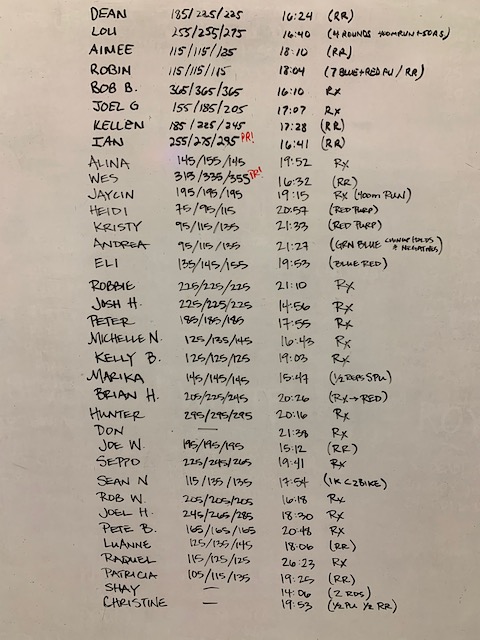 DEAN 185/225/225 16:24 (RR)
LOU 255/255/275 16:40 (4 ROUNDS 400M RUN + 50 RS)
AIMEE 115/115/135 18:10 (RR)
ROBIN 115/115/115 18:04 (7 BLUE+RED PU / RR)
BOB B. 365/365/365 16:10 RX
JOEL G 155/185/205 17:07 RX
KELLEN 185/225/245 17:28 (RR)
IAN 255/275/295 PR! 16:41 (RR)
ALINA 145/155/145 19:52 RX
WES 315/335/355 PR! 16:32 (RR)
JAYCIN 195/195/195 19:15 RX (400M RUN)
HEIDI 75/95/115 20:57 (RED PURP)
KRISTY 95/115/135 21:33 (RED PURP)
ANDREA 95/115/135 21:27 (GRN BLUE & NEGATIVES)
ELI 135/145/155 19:53 (BLUE RED)
ROBBIE 225/225/225 21:10 RX
JOSH H. 225/225/225 14:56 RX
PETER 185/185/185 17:55 RX
MICHELLE N. 125/135/145 16:43 RX
KELLY B. 125/125/125 19:03 RX
MARIKA 145/145/145 15:47 (1/2 REPS SPU)
BRIAN H. 205/225/245 20:26 (RX→RED)
HUNTER 295/295/295 20:16 RX
DON — 21:38 RX
JOE W. 195/195/195 15:12 (RR)
SEPPO 225/245/265 19:41 RX
SEAN N 115/135/135 17:54 (1K C2BIKE)
ROB W. 205/205/205 16:18 RX
JOEL H. 245/265/285 18:30 RX
PETE B. 165/165/165 20:48 RX
LUANNE 125/135/145 18:06 (RR)
RAQUEL 115/125/125 26:23 RX
PATRICIA 105/115/135 19:25 (RR)
SHAY — 14:06 (2 RDS)
CHRISTINE — 19:53 (1/2 PU 1/2 RR)